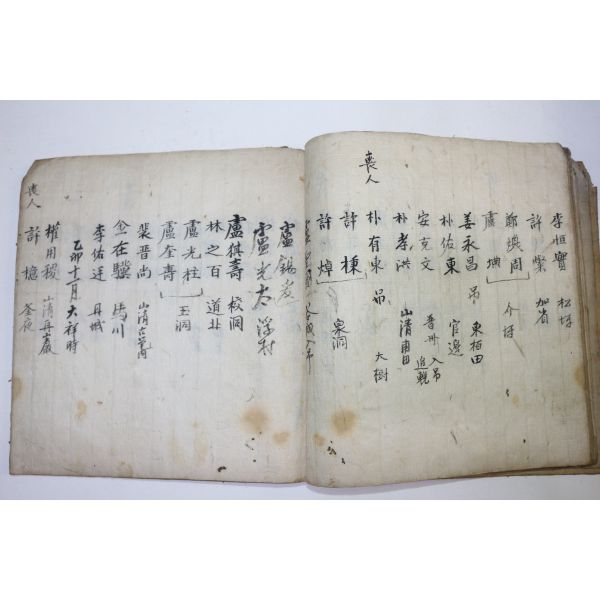 李恒寶 松坪
許 業 加省
鄭璣周 介坪
盧 㙉
姜永昌 吊 東栢田
朴佑東 官邊
安克文 晋州 入吊 追輓
朴孝洪 山清 面目
朴有東 吊 大樹
喪人
許 棟 泉洞
許 焯
盧錫愛
盧光大 浮村
盧祺壽 校洞
林之百 道北
盧光柱 玉洞
盧奎壽
裴晋尚 山清
金在驥 馬川
李佑廷 丹城
乙卯十一月 大祥時
權用稷 山清丹巖
喪人 許 檍 釜夜